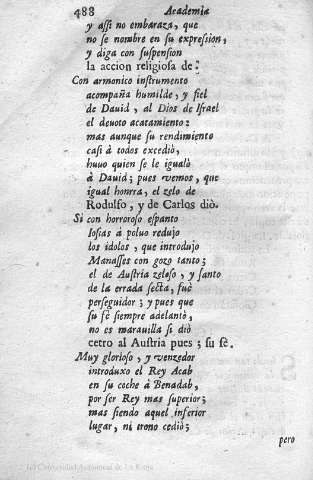 488 Academia
y assi no embaraza, que
no se nombre en su expression,
y diga con suspension
la accion religiosa de:
Con armonico instrumento
acompaña humilde, y fiel
de Dauid, al Dios de Israel
el deuoto acatamiento:
mas aunque su rendimiento
casi à todos excediò,
huuo quien se le igualò
à Dauid; pues vemos, que
igual honrra, el zelo de
Rodulfo, y de Carlos diò.
Si con horroroso espanto
Iosias à poluo redujo
los idolos, que introdujo
Manasses con gozo tanto;
el de Austria zeloso, y santo
de la errada secta, fuè
perseguidor; y pues que
su fè siempre adelantò,
no es marauilla si diò
cetro al Austria pues; su fè.
Muy glorioso, y venzedor
introduxo el Rey Acab
en su coche à Benadab,
por ser Rey mas superior;
mas siendo aquel inferior
lugar, ni trono cediò;
pero
(c) Universidad Autónoma de La Rioja